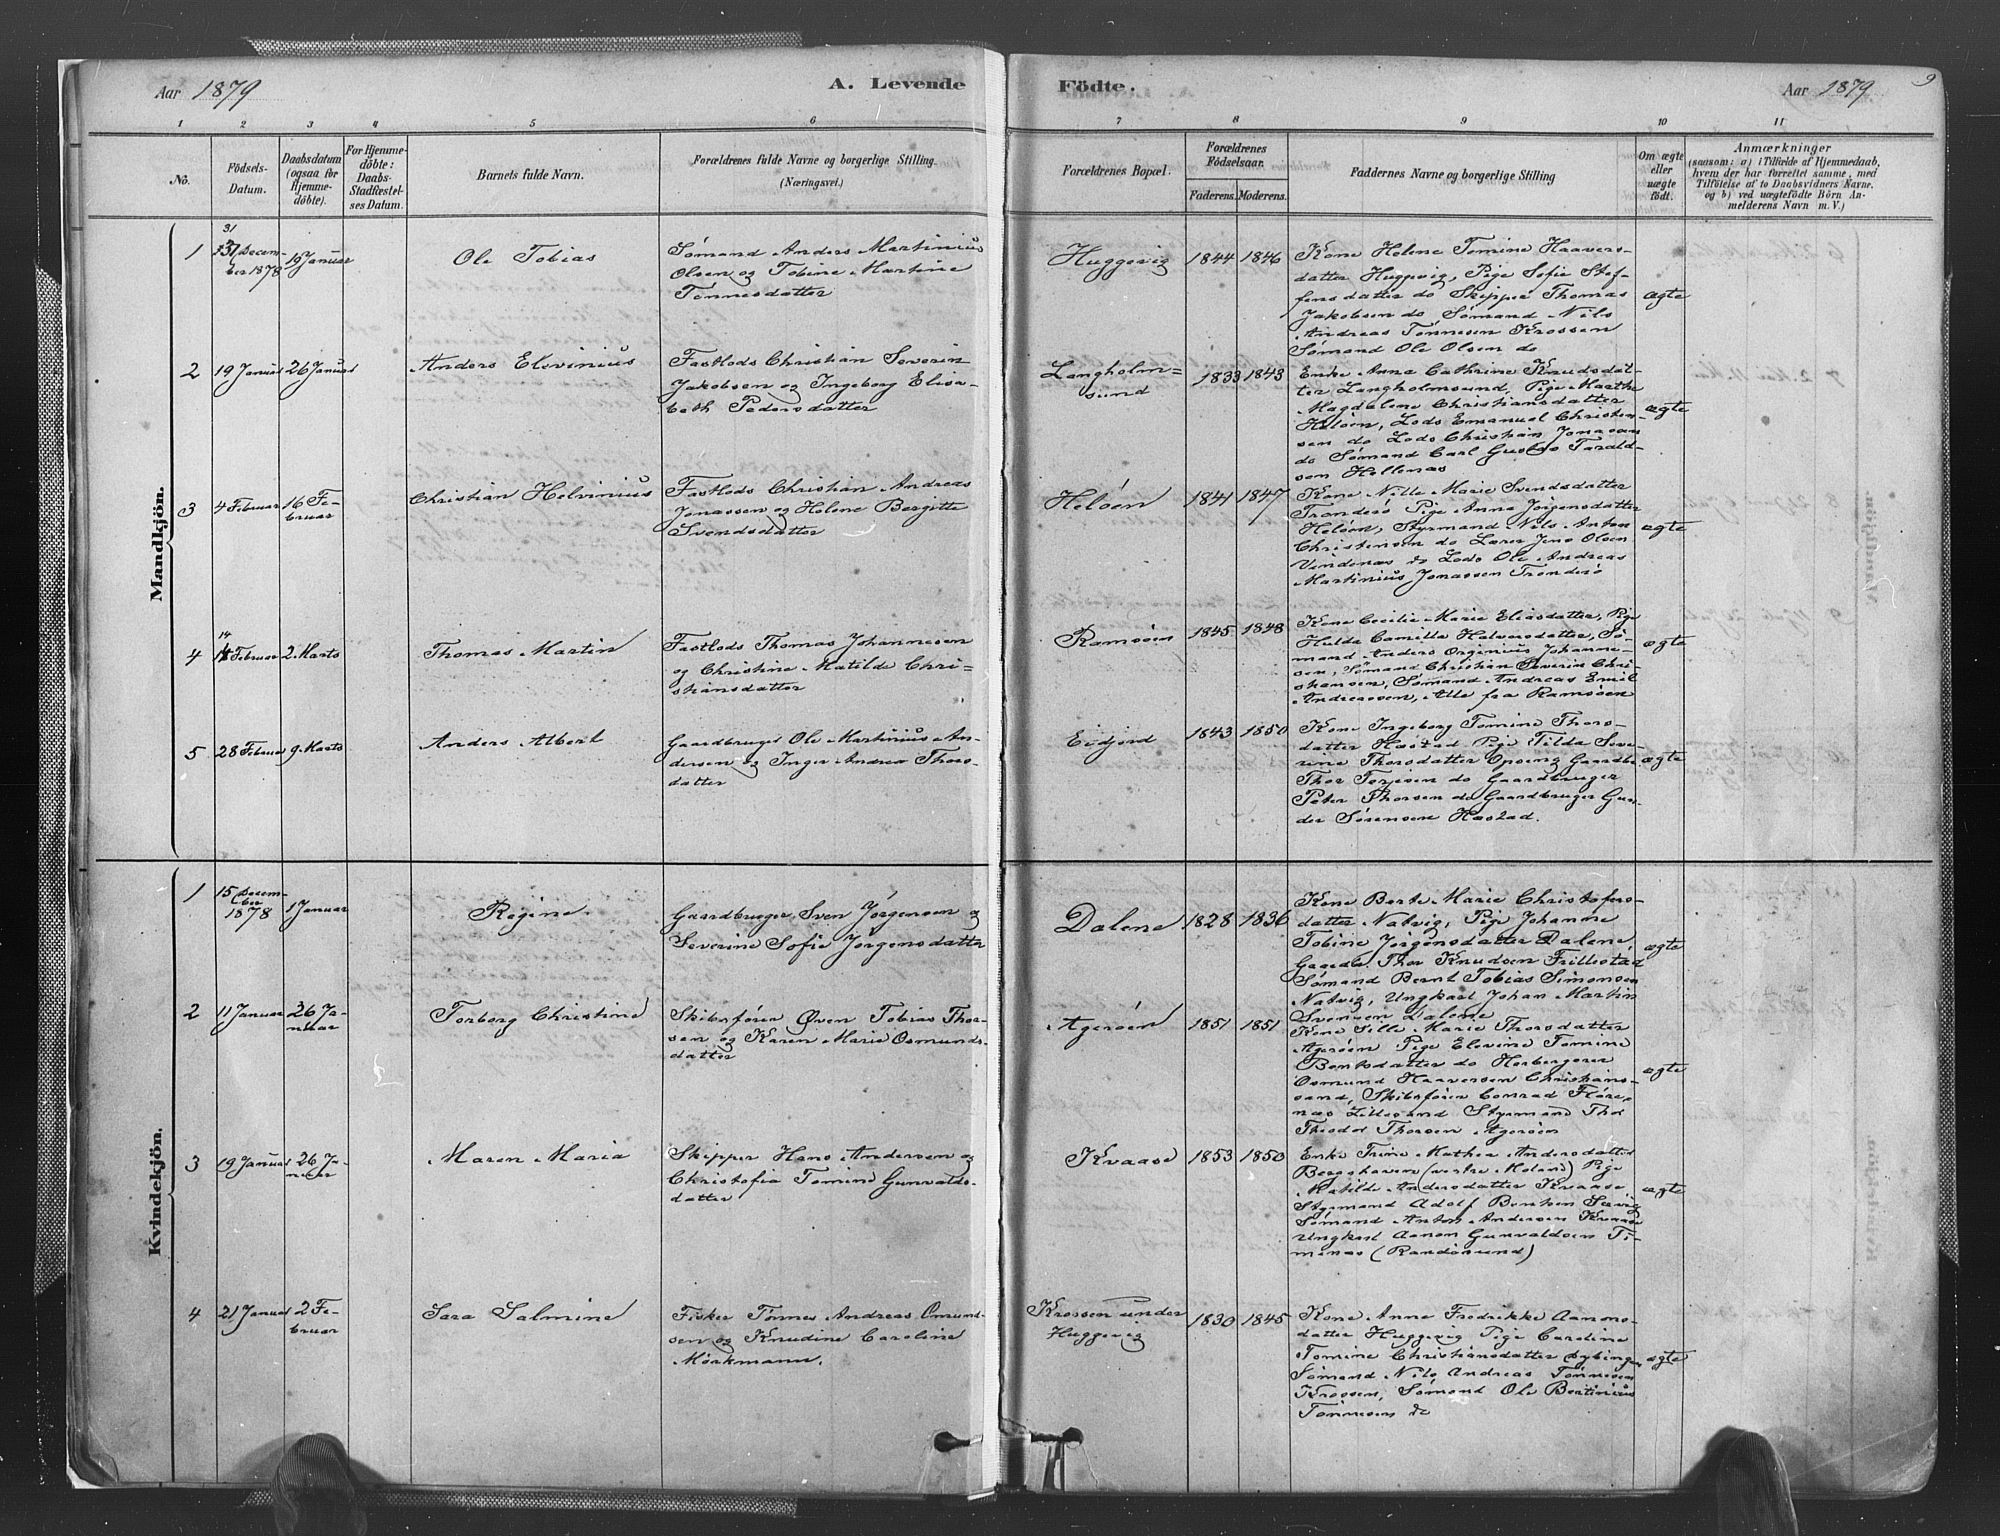 Aar 1879
A. Levende
Födte.
Aar 1879
9
1 2 3 4 5 6 7 8 9 10 11
No.
Födsels-
Datum.
Daabsdatum
(ogsaa for
Hjemme-
döbte).
For Hjemme-
döbte:
Daabs-
Stadfæstel-
ses Datum.
Barnets fulde Navn.
Forældrenes fulde Navne og borgerlige Stilling.
(Næringsvei.)
Forældrenes Bopæl.
Forældrenes
Födselsaar.
Faderens. Moderens.
Faddernes Navne og borgerlige Stilling
Om ægte
eller
uægte
födt.
Anmærkninger
(saasom: a) i Tilfælde af Hjemmedaab,
hvem der har forrettet samme, med
Tilföielse af to Daabsvidners Navne,
og b) ved uægtefödte Börn An-
melderens Navn m. V.)
Mandkjön.
1
31
Decem-
ber 1878
19 Januar
Ole Tobias
Sømand Anders Martinius
Olsen og Tobine Martine
Tønnesdatter
Huggevig
1844 1846
Kone Helene Tomine Haavers-
datter Huggevig, Pige Sofie Stef-
fensdatter do Skipper Thomas
Jakobsen do Sømand Nils
Andreas Tønnesen Krossen
Sømand Ole Olsen do
ægte
2
19 Januar
26 Januar
Anders Elevinius
Fastlods Christian Severin
Jakobsen og Ingeborg Elisa-
beth Pedersdatter
Langholm=
sund
1833 1843
Enke Anna Cathrine Knudsdat-
ter Langholmsund, Pige Marthe
Magdalene Christiansdatter
Heløen, Lods Emanuel Christen-
sen do Lods Christian Jonassen
do Sømand Carl Gustav Tarald-
sen Hellenæs
ægte
3
4 Februar
16 Fe-
bruar
Christian Helvinius
Fastlods Christian Andreas
Jonassen og Helene Bergitte
Svendsdatter
Heløen
1841 1847
Kone Nille Marie Svendsdatter
Trønderø Pige Anna Jørgensdatter
Heløen, Styrmand Nils Anton
Christensen do Lærer Jens Olsen
Vindenæs do Lods Ole Andreas
Martinius Jonassen Trønderø
ægte
4
14
Februar
2 Marts
Thomas Martin
Fastlods Thomas Johannesen
og Christine Matilde Chri-
stiansdatter
Ramsøen
1845 1848
Kone Cecilie Marie Eliasdatter, Pige
Hulda Camilla Halvorsdatter, Sø-
mand Anders Orginius Johanne-
sen, Sømand Christian Severin Chri-
stiansen, Sømand Andreas Emil
Andreassen, Alle fra Ramsøen
ægte
5
28 Februar
9 Marts
Anders Albert
Gaardbruger Ole Martinius An-
dersen og Inger Andrea Thors-
datter
Eidjord
1843 1850
Kone Ingeborg Tomine Thors-
datter Hæstad Pige Tilda Seve-
rine Thorsdatter Opseng Gaardbr.
Thor Torjesen do Gaardbruger
Peter Thorsen do Gaardbruger Gun-
der Sørensen Hæstad.
ægte
Kvindekjön.
1
15 Decem-
ber
1878
1 Januar
Regine
Gaardbruger Sven Jørgensen og
Severine Sofie Jørgensdatter
Dalene
1828 1836
Kone Berte Marie Christofers-
datter Natvig, Pige Johanne
Tobine Jørgensdatter Dalene,
Gaardbr. Thor Knudsen Frillestad
Sømand Bernt Tobias Simonsen
Natvig, Ungkarl Johan Martin
Svensen Dalene
ægte
2
11 Januar
26 Ja-
nuar
Torborg Christine
Skibsfører Øven Tobias Thor-
sen og Karen Marie Osmunds-
datter
Agerøen
1851 1851
Kone Sille Marie Thorsdatter
Agerøen Pige Elevine Tomine
Bentsdatter do Herbergerer
Osmund Haaversen Christians-
sand, Skibsfører Conrad Flore-
næs Lillesand Styrmand Thor
Theodor Thorsen Agerøen
ægte
3
19 Januar
26 Ja-
nuar
Maren Maria
Skipper Hans Andersen og
Christofia Tomine Gunvalds-
datter
Kvaase
1853 1850
Enke Trine Mathea Andersdatter
Bergshaven (vestre Moland) Pige
Matilde Andersdatter Kvaase
Styrmand Adolf Bentsen
Sømand Anton Andersen Kvaase
Ungkarl Aanon Gunvaldsen Ti-
menæs (Randøsund)
ægte
4
21 Januar
2 Fe-
bruar
Sara Salmine
Fisker Tønnes Andreas Omund-
sen og Knudine Caroline
Mørkmann.
Krossen under
Huggevig
1830 1845
Kone Anne Fredrikke Aanons-
datter Huggevig Pige Caroline
Tomine Christiansdatter
Sømand Nils Andreas Tønnesen
Krossen, Sømand Ole Bertinius
Tønnesen do
ægte